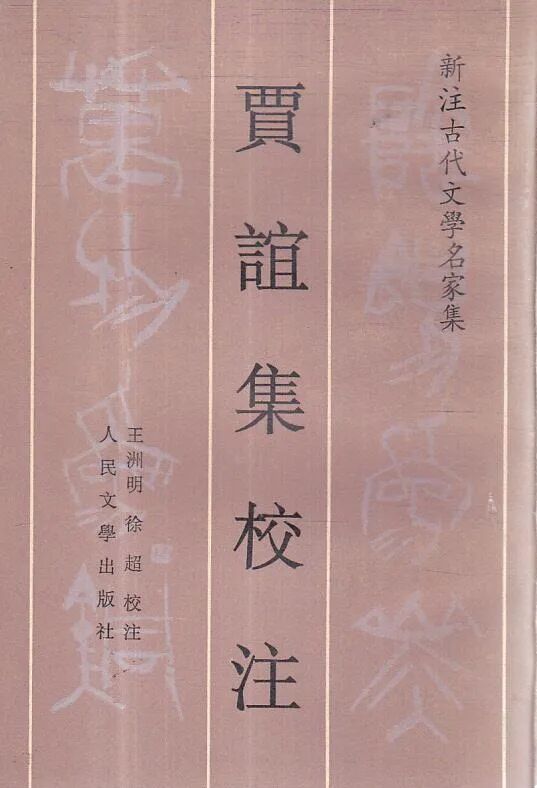 新注古代文學名家集
賈誼集校注
王洲明 徐超 校注
人民文學出版社